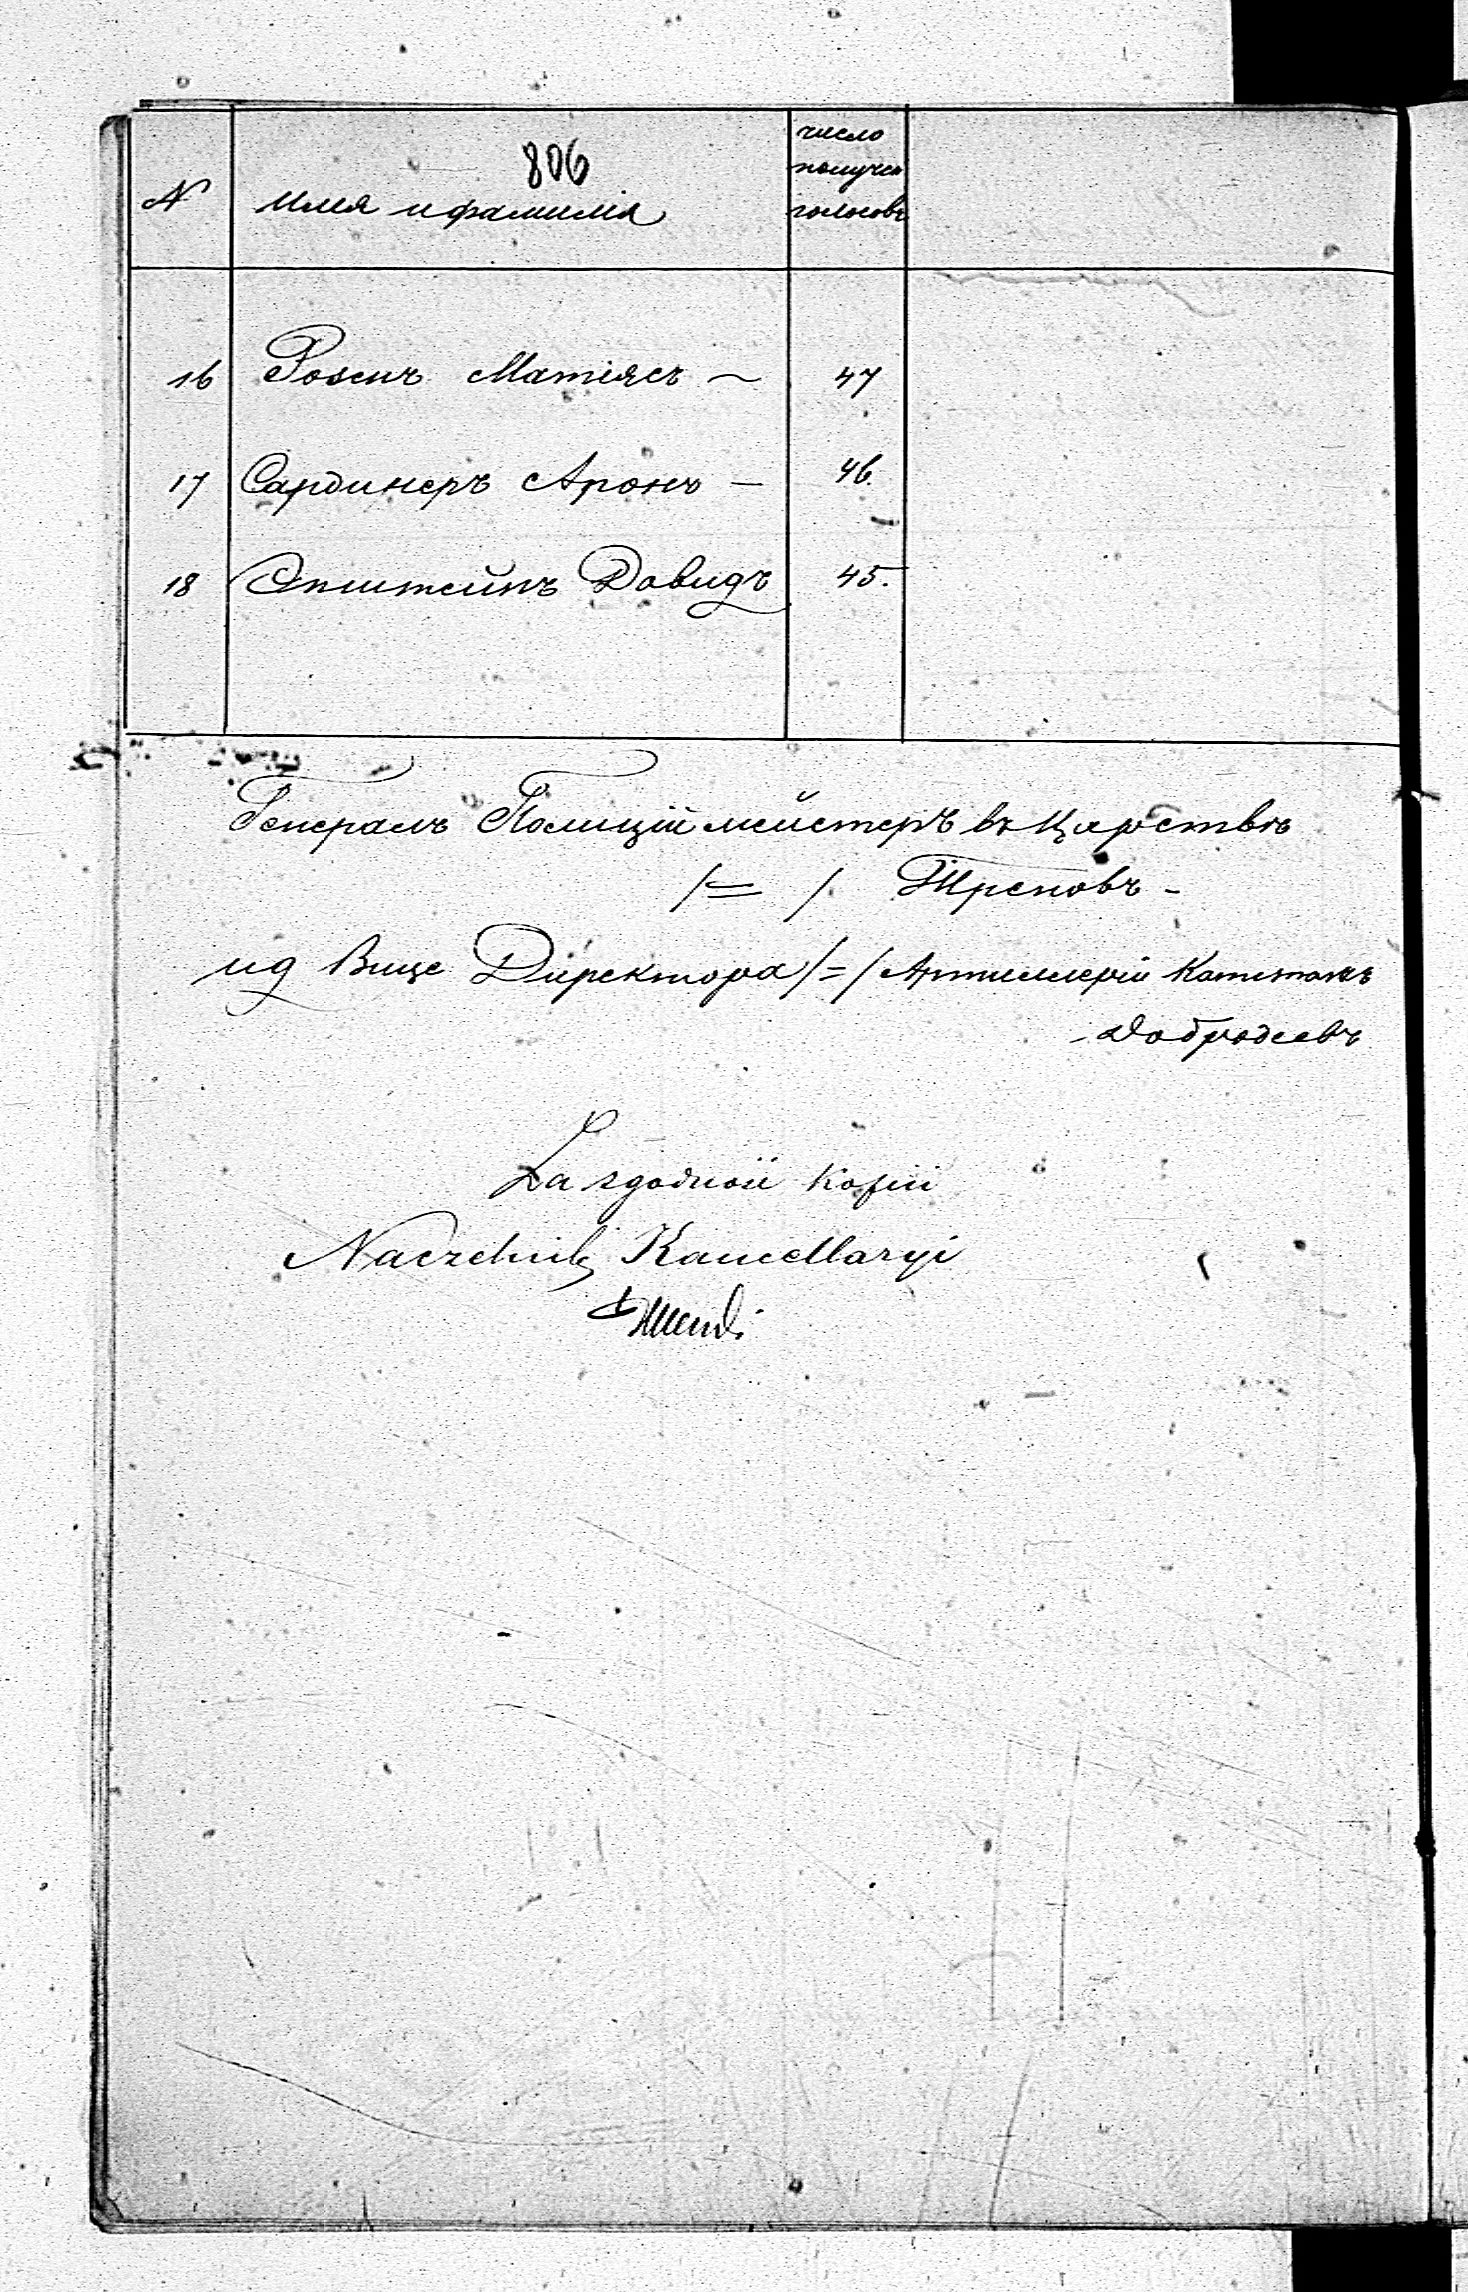 806
N имя и фамилія число получен голосовъ
16 Розенъ Матіясъ — 47
17 Сардинеръ Аронъ — 46.
18 Эпштейнъ Довидъ 45.
Генералъ Полиціймейстеръ въ Царствѣ
/=/ Треповъ -
ид Вице Директора /=/ Артиллеріи Капитанъ
Добродеевъ
Za zgodność kopii
Naczelnik Kancellaryi